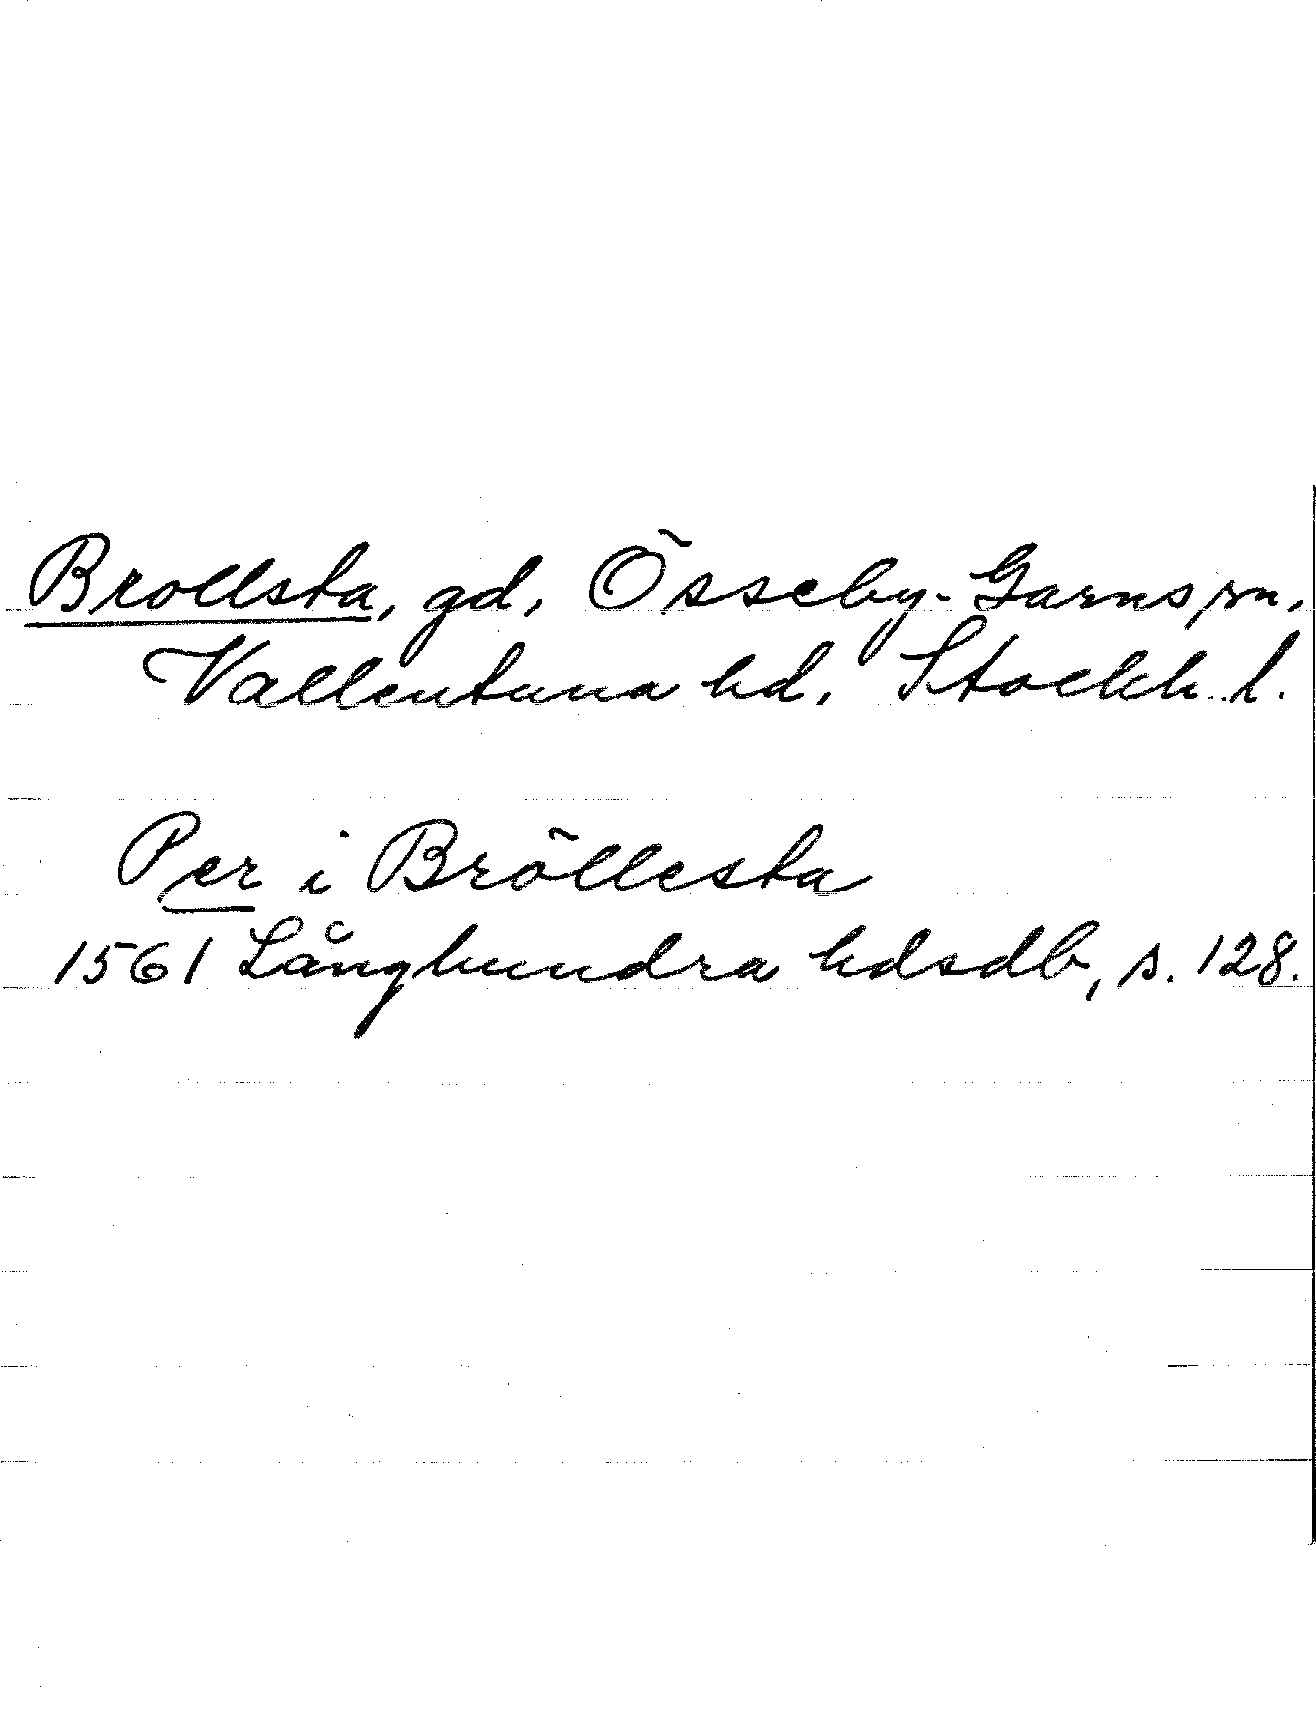 Brollsta, gd, Össeby-Garns sn,
Vallentuna hd, Stockh. l.
Per i Bröllesta
1561 Långhundra hdsdb, s. 128.